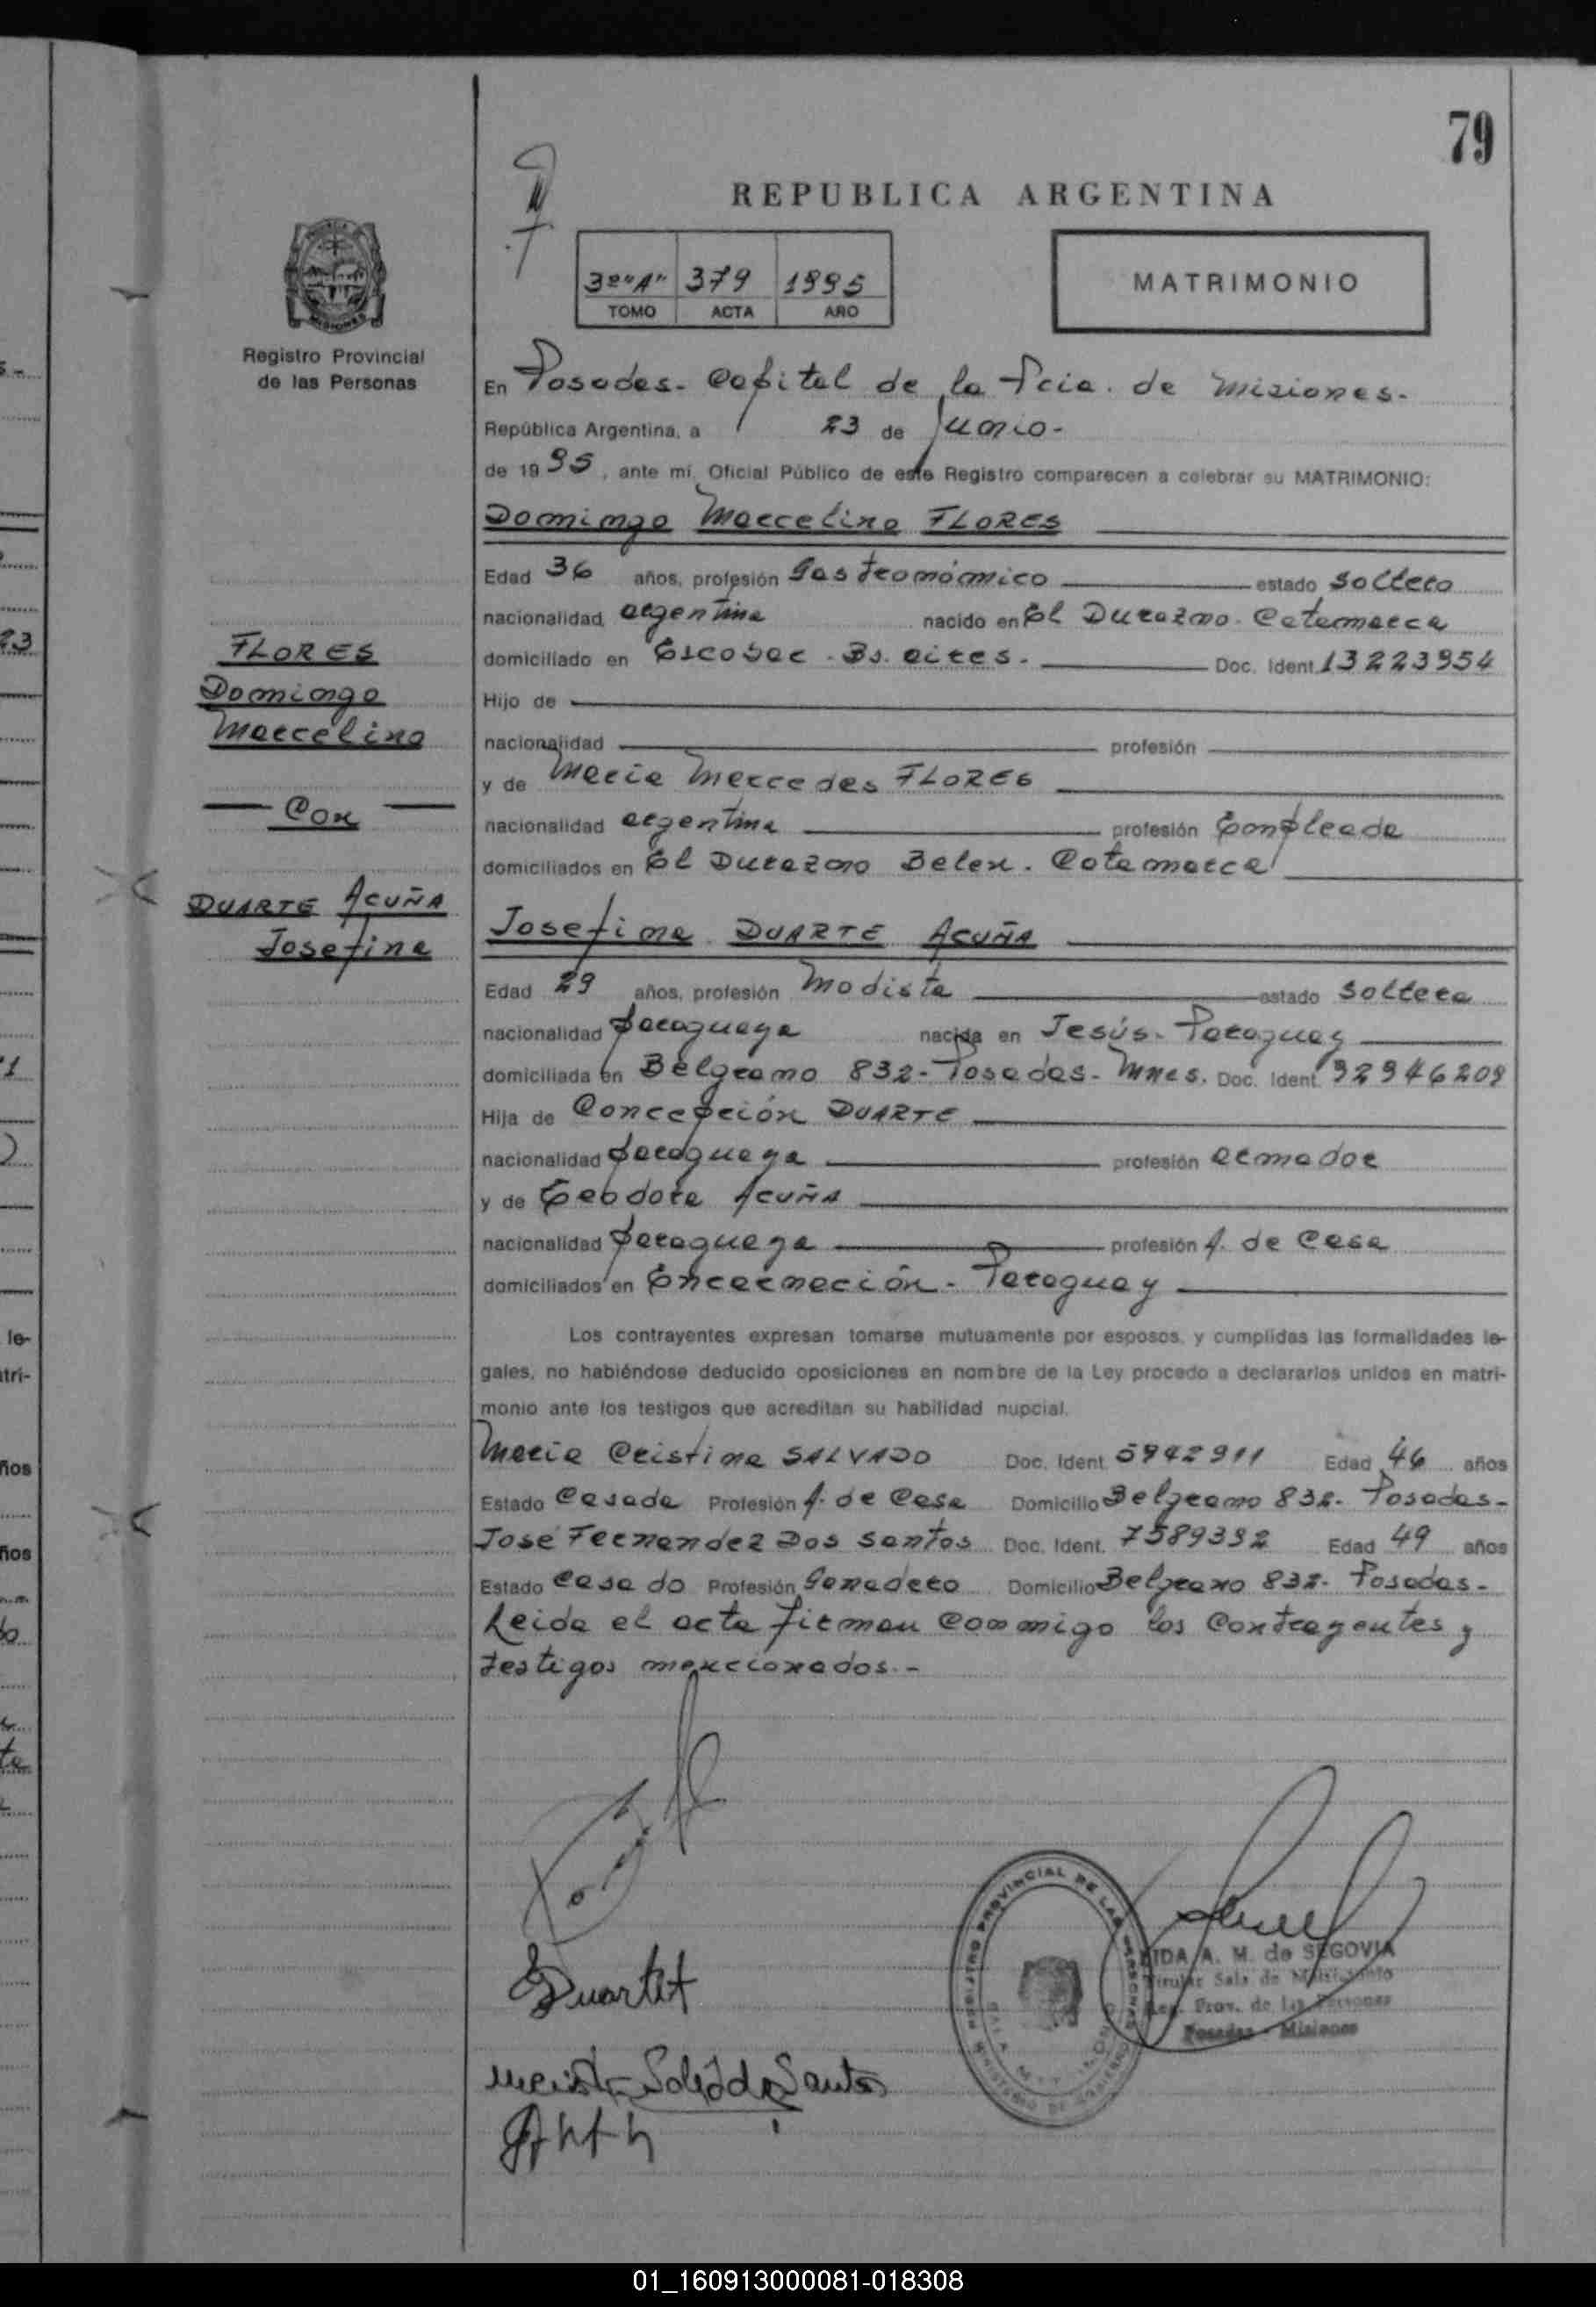 79
REPUBLICA ARGENTINA
3º "A" 379 1995
TOMO ACTA AÑO
MATRIMONIO
Registro Provincial
de las Personas
En Posadas - Capital de la Pcia. de Misiones.-
República Argentina, a 23 de Junio.-
de 1995, ante mí, Oficial Público de este Registro comparecen a celebrar su MATRIMONIO:
Domingo Marcelino FLORES
Edad 36 años, profesión Gastronómico estado Soltero
nacionalidad argentina nacido en El Durazno - Catamarca
domiciliado en Escobar - Bs. aires - Doc. Ident. 13223954
Hijo de
nacionalidad profesión
y de Maria Mercedes FLORES
nacionalidad argentina profesión Empleada
domiciliados en El Durazno Belen. Catamarca
FLORES
Domingo
Marcelino
— Con —
DUARTE ACUÑA
Josefina
Josefina DUARTE ACUÑA
Edad 29 años, profesión Modista estado Soltera
nacionalidad paraguaya nacida en Jesús - Paraguay
domiciliada en Belgrano 832 - Posadas - Mnes. Doc. Ident. 92946208
Hija de Concepción DUARTE
nacionalidad paraguaya profesión armador
y de Teodora ACUÑA
nacionalidad paraguaya profesión A. de Casa
domiciliados en Encarnación - Paraguay
Los contrayentes expresan tomarse mutuamente por esposos, y cumplidas las formalidades le-
gales, no habiéndose deducido oposiciones en nombre de la Ley procedo a declararlos unidos en matri-
monio ante los testigos que acreditan su habilidad nupcial.
Maria Cristina SALVADO Doc. Ident. 5942911 Edad 46 años
Estado Casada Profesión A. de Casa Domicilio Belgrano 832 - Posadas -
José Fernandez Dos Santos Doc. Ident. 7589392 Edad 49 años
Estado Casado Profesión Ganadero Domicilio Belgrano 832 - Posadas -
Leida el acta firman conmigo los contrayentes y
testigos mencionados.-
Duarte
REGISTRO PROVINCIAL DE LAS PERSONAS
MINISTERIO DE GOBIERNO
A. M. de SEGOVIA
Titular Sala de Matrimonio
Reg. Prov. de las Personas
Posadas - Misiones
01_160913000081-018308